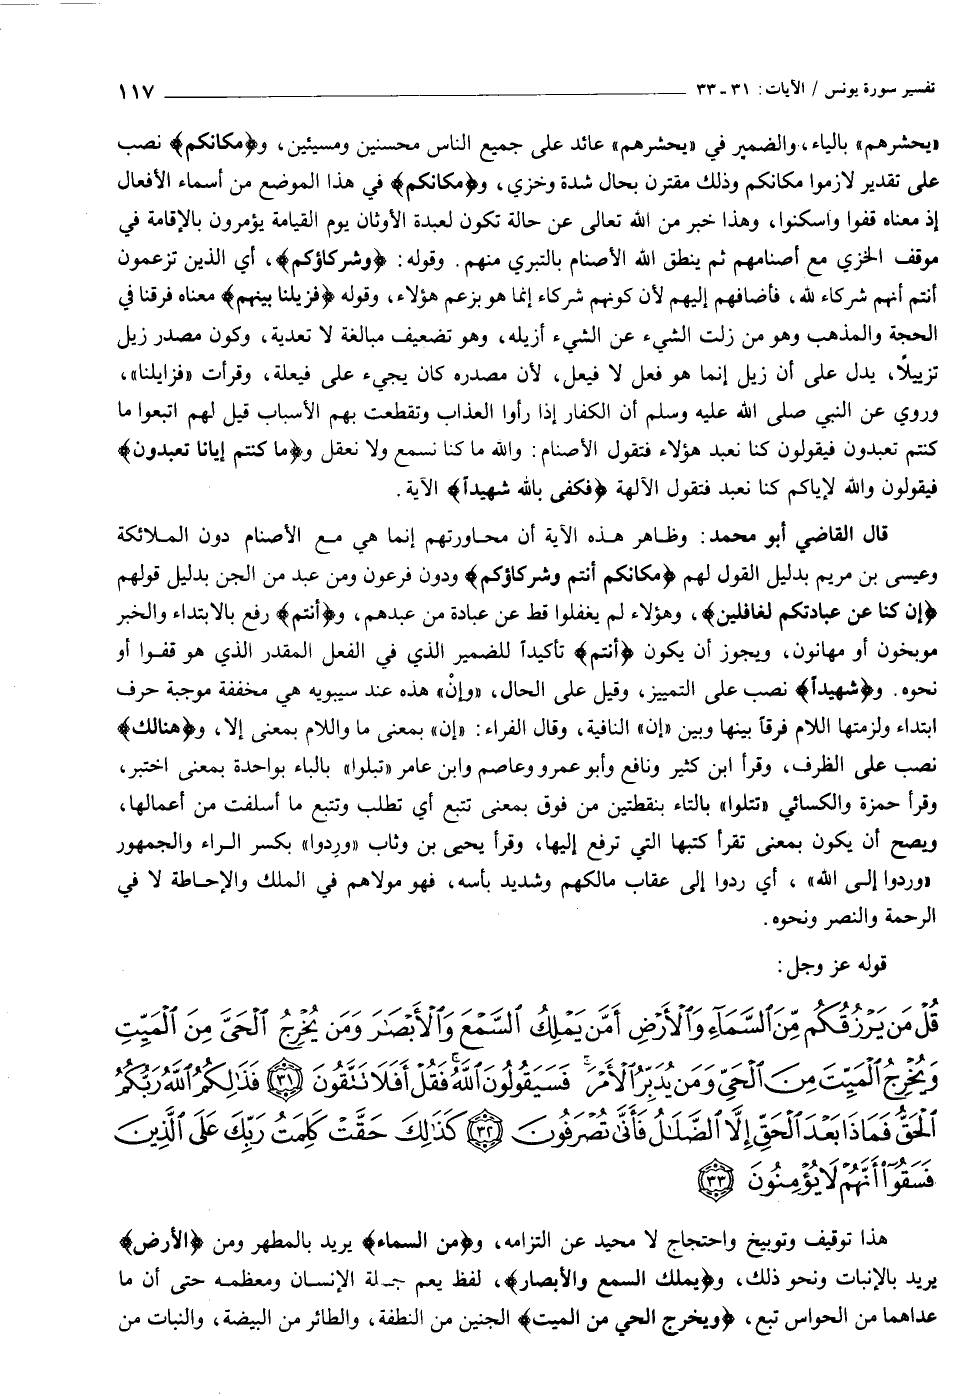 تفسير سورة يونس / الآيات: ٣١ - ٣٣ ١١٧
«يحشرهم» بالياء، والضمير في «يحشرهم» عائد على جميع الناس محسنين ومسيئين، و﴿مكانكم﴾ نصب
على تقدير لازموا مكانكم وذلك مقترن بحال شدة وخزي، و﴿مكانكم﴾ في هذا الموضع من أسماء الأفعال
إذ معناه قفوا واسكنوا، وهذا خبر من الله تعالى عن حالة تكون لعبدة الأوثان يوم القيامة يؤمرون بالإقامة في
موقف الخزي مع أصنامهم ثم ينطق الله الأصنام بالتبري منهم. وقوله: ﴿وشركاؤكم﴾، أي الذين تزعمون
أنتم أنهم شركاء لله، فأضافهم إليهم لأن كونهم شركاء إنما هو بزعم هؤلاء، وقوله ﴿فزيلنا بينهم﴾ معناه فرقنا في
الحجة والمذهب وهو من زلت الشيء عن الشيء أزيله، وهو تضعيف مبالغة لا تعدية، وكون مصدر زيل
تزييلاً، يدل على أن زيل إنما هو فعل لا فيعل، لأن مصدره كان يجيء على فيعلة، وقرأت «فزايلنا»،
وروي عن النبي صلى الله عليه وسلم أن الكفار إذا رأوا العذاب وتقطعت بهم الأسباب قيل لهم اتبعوا ما
كنتم تعبدون فيقولون كنا نعبد هؤلاء فتقول الأصنام: والله ما كنا نسمع ولا نعقل و﴿ما كنتم إيانا تعبدون﴾
فيقولون والله لإياكم كنا نعبد فتقول الآلهة ﴿فكفى بالله شهيداً﴾ الآية.
قال القاضي أبو محمد: وظاهر هذه الآية أن محاورتهم إنما هي مع الأصنام دون الملائكة
وعيسى بن مريم بدليل القول لهم ﴿مكانكم أنتم وشركاؤكم﴾ ودون فرعون ومن عبد من الجن بدليل قولهم
﴿إن كنا عن عبادتكم لغافلين﴾، وهؤلاء لم يغفلوا قط عن عبادة من عبدهم، و﴿أنتم﴾ رفع بالابتداء والخبر
موبخون أو مهانون، ويجوز أن يكون ﴿أنتم﴾ تأكيداً للضمير الذي في الفعل المقدر الذي هو قفوا أو
نحوه. و﴿شهيداً﴾ نصب على التمييز، وقيل على الحال، «وإنْ» هذه عند سيبويه هي مخففة موجبة حرف
ابتداء ولزمتها اللام فرقاً بينها وبين «إن» النافية، وقال الفراء: «إن» بمعنى ما واللام بمعنى إلا، و﴿هنالك﴾
نصب على الظرف، وقرأ ابن كثير ونافع وأبو عمرو وعاصم وابن عامر «تبلوا» بالباء بواحدة بمعنى اختبر،
وقرأ حمزة والكسائي «تتلوا» بالتاء بنقطتين من فوق بمعنى تتبع أي تطلب وتتبع ما أسلفت من أعمالها،
ويصح أن يكون بمعنى تقرأ كتبها التي ترفع إليها، وقرأ يحيى بن وثاب «وردوا» بكسر الراء والجمهور
«وردوا إلى الله» ، أي ردوا إلى عقاب مالكهم وشديد بأسه، فهو مولاهم في الملك والإحاطة لا في
الرحمة والنصر ونحوه.
قوله عز وجل:
قُلْ مَن يَرْزُقُكُم مِّنَ ٱلسَّمَآءِ وَٱلْأَرْضِ أَمَّن يَمْلِكُ ٱلسَّمْعَ وَٱلْأَبْصَٰرَ وَمَن يُخْرِجُ ٱلْحَىَّ مِنَ ٱلْمَيِّتِ
وَيُخْرِجُ ٱلْمَيِّتَ مِنَ ٱلْحَىِّ وَمَن يُدَبِّرُ ٱلْأَمْرَ ۚ فَسَيَقُولُونَ ٱللَّهُ ۚ فَقُلْ أَفَلَا تَتَّقُونَ ٣١ فَذَٰلِكُمُ ٱللَّهُ رَبُّكُمُ
ٱلْحَقُّ ۖ فَمَاذَا بَعْدَ ٱلْحَقِّ إِلَّا ٱلضَّلَٰلُ ۖ فَأَنَّىٰ تُصْرَفُونَ ٣٢ كَذَٰلِكَ حَقَّتْ كَلِمَتُ رَبِّكَ عَلَى ٱلَّذِينَ
فَسَقُوٓا۟ أَنَّهُمْ لَا يُؤْمِنُونَ ٣٣
هذا توقيف وتوبيخ واحتجاج لا محيد عن التزامه، و﴿من السماء﴾ يريد بالمطهر ومن ﴿الأرض﴾
يريد بالإنبات ونحو ذلك، و﴿يملك السمع والأبصار﴾، لفظ يعم جملة الإنسان ومعظمه حتى أن ما
عداهما من الحواس تبع، ﴿ويخرج الحي من الميت﴾ الجنين من النطفة، والطائر من البيضة، والنبات من